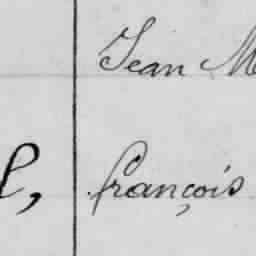 Jean M
l, françois